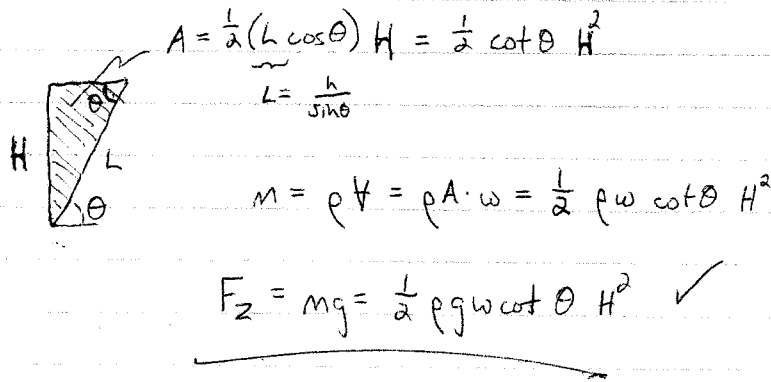 A = ½ (L cosθ) H = ½ cot θ H²
L = h / sinθ
θ
H
L
θ
m = ρV = ρA·w = ½ ρw cotθ H²
F_z = mg = ½ ρgw cot θ H² ✓